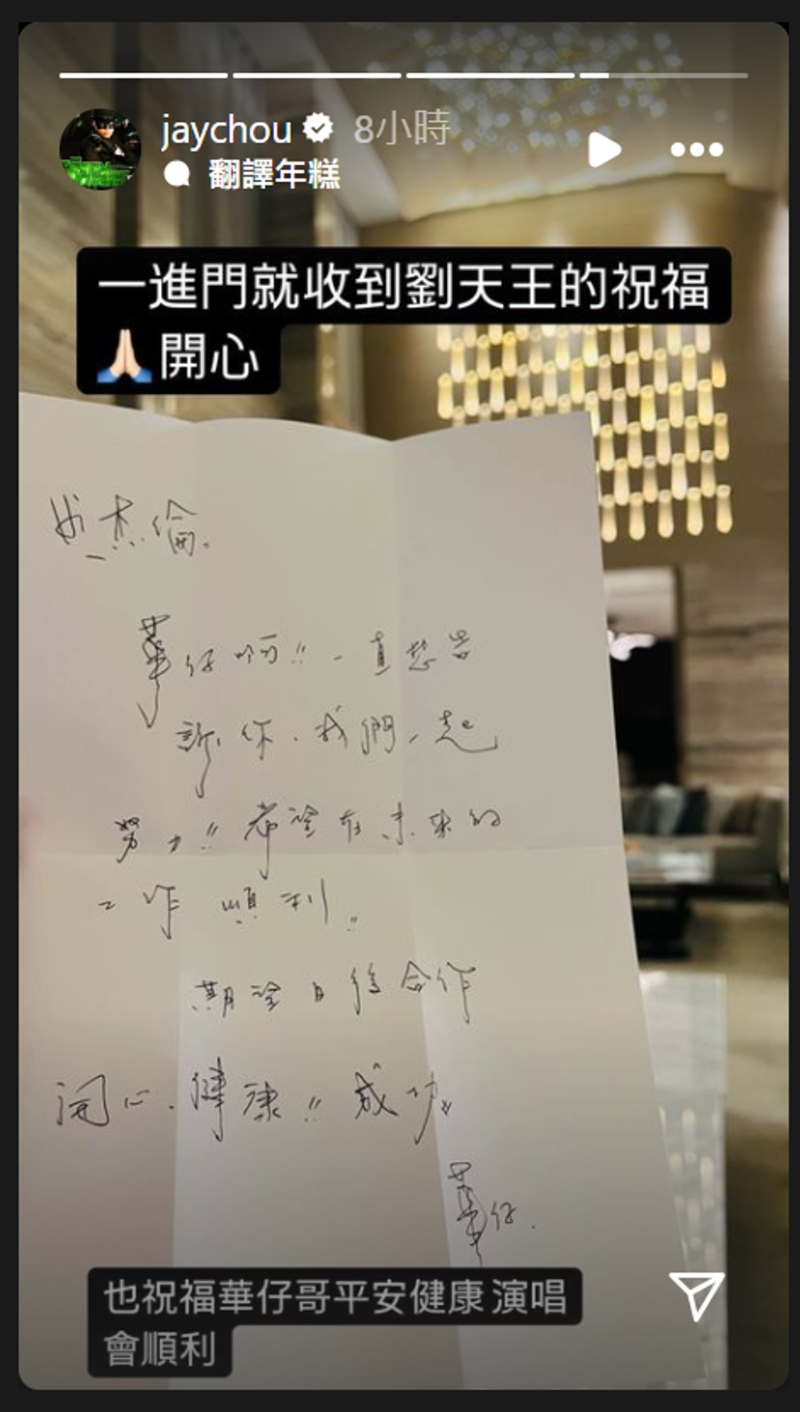 jaychou 8小時
翻譯年糕
一進門就收到劉天王的祝福
🙏🏻開心
杰倫.
華仔呀!! 一直想告
訴你.我們一起
努力!! 希望在未來的
工作 順利!!
期望日後合作
開心.健康!! 成功!!
華仔.
也祝福華仔哥平安健康 演唱
會順利